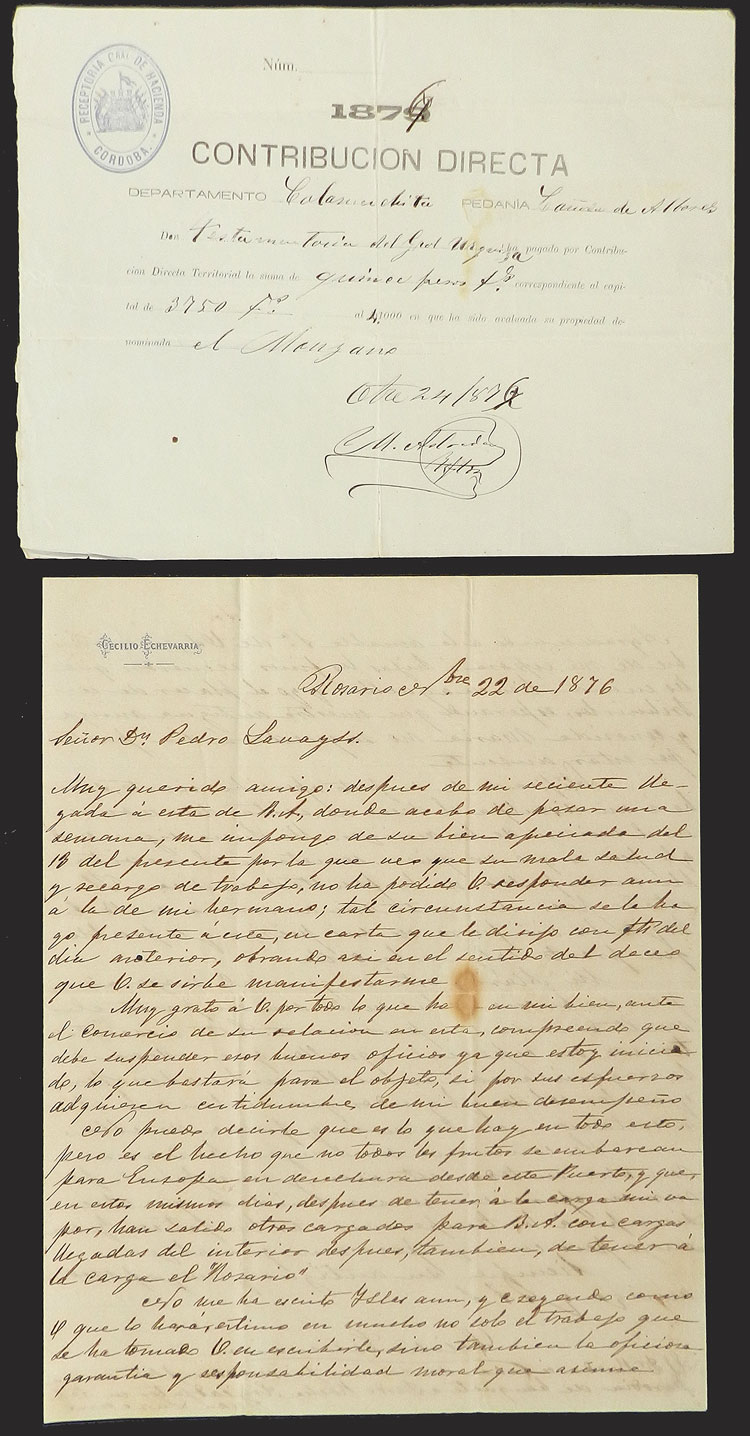 RECEPTORIA GRAL DE HACIENDA
CORDOBA.
Núm.
1876
CONTRIBUCION DIRECTA
DEPARTAMENTO Calamuchita PEDANÍA Cañada de Alvarez
Don Testamentaria del Gral Urquiza ha pagado por Contribu-
cion Directa Territorial la suma de quince pesos fs correspondiente al capi-
tal de 3750 fs al 4 1000 en que ha sido avaluada su propiedad de-
nominada el Manzano
Otre 24/876
CECILIO ECHEVARRIA
Rosario Nbre 22 de 1876
Señor Dn Pedro Lavayss.
Muy querido amigo: despues de mi reciente lle-
gada á esta de B.A, donde acabo de pasar una
semana, me impongo de su bien apreciada del
13 del presente por la que veo que su mala salud
y recargo de trabajo, no ha podido V. responder aun
á la de mi hermano; tal circunstancia se la ha
go presente á este, en carta que le dirijo con fha del
dia anterior, obrando asi en el sentido del deceo
que V. se sirbe manifestarme
Muy grato á V. por todo lo que ha en mi bien, ante
el comercio de su relacion en esta, comprendo que
debe suspender esos buenos oficios ya que estoy inicia-
do, lo que bastará para el objeto, si por sus esfuerzos
adquieren certidumbre de mi buen desempeño
No puedo decirle que es lo que hay en todo esto,
pero es el hecho que no todos los frutos se embarcan
para Europa en derechura desde este Puerto, y que,
en estos mismos dias, despues de tener á la carga mi va
por, han salido otros cargados para B.A. con cargas
llegadas del interior despues, tambien, de tener á
la carga el "Rosario"
No me ha escrito Islas aun, y creyendo como
V que lo hará, estimo en mucho no solo el trabajo que
se ha tomado V. en escribirle, sino tambien la oficiosa
garantia y responsabilidad moral que asume